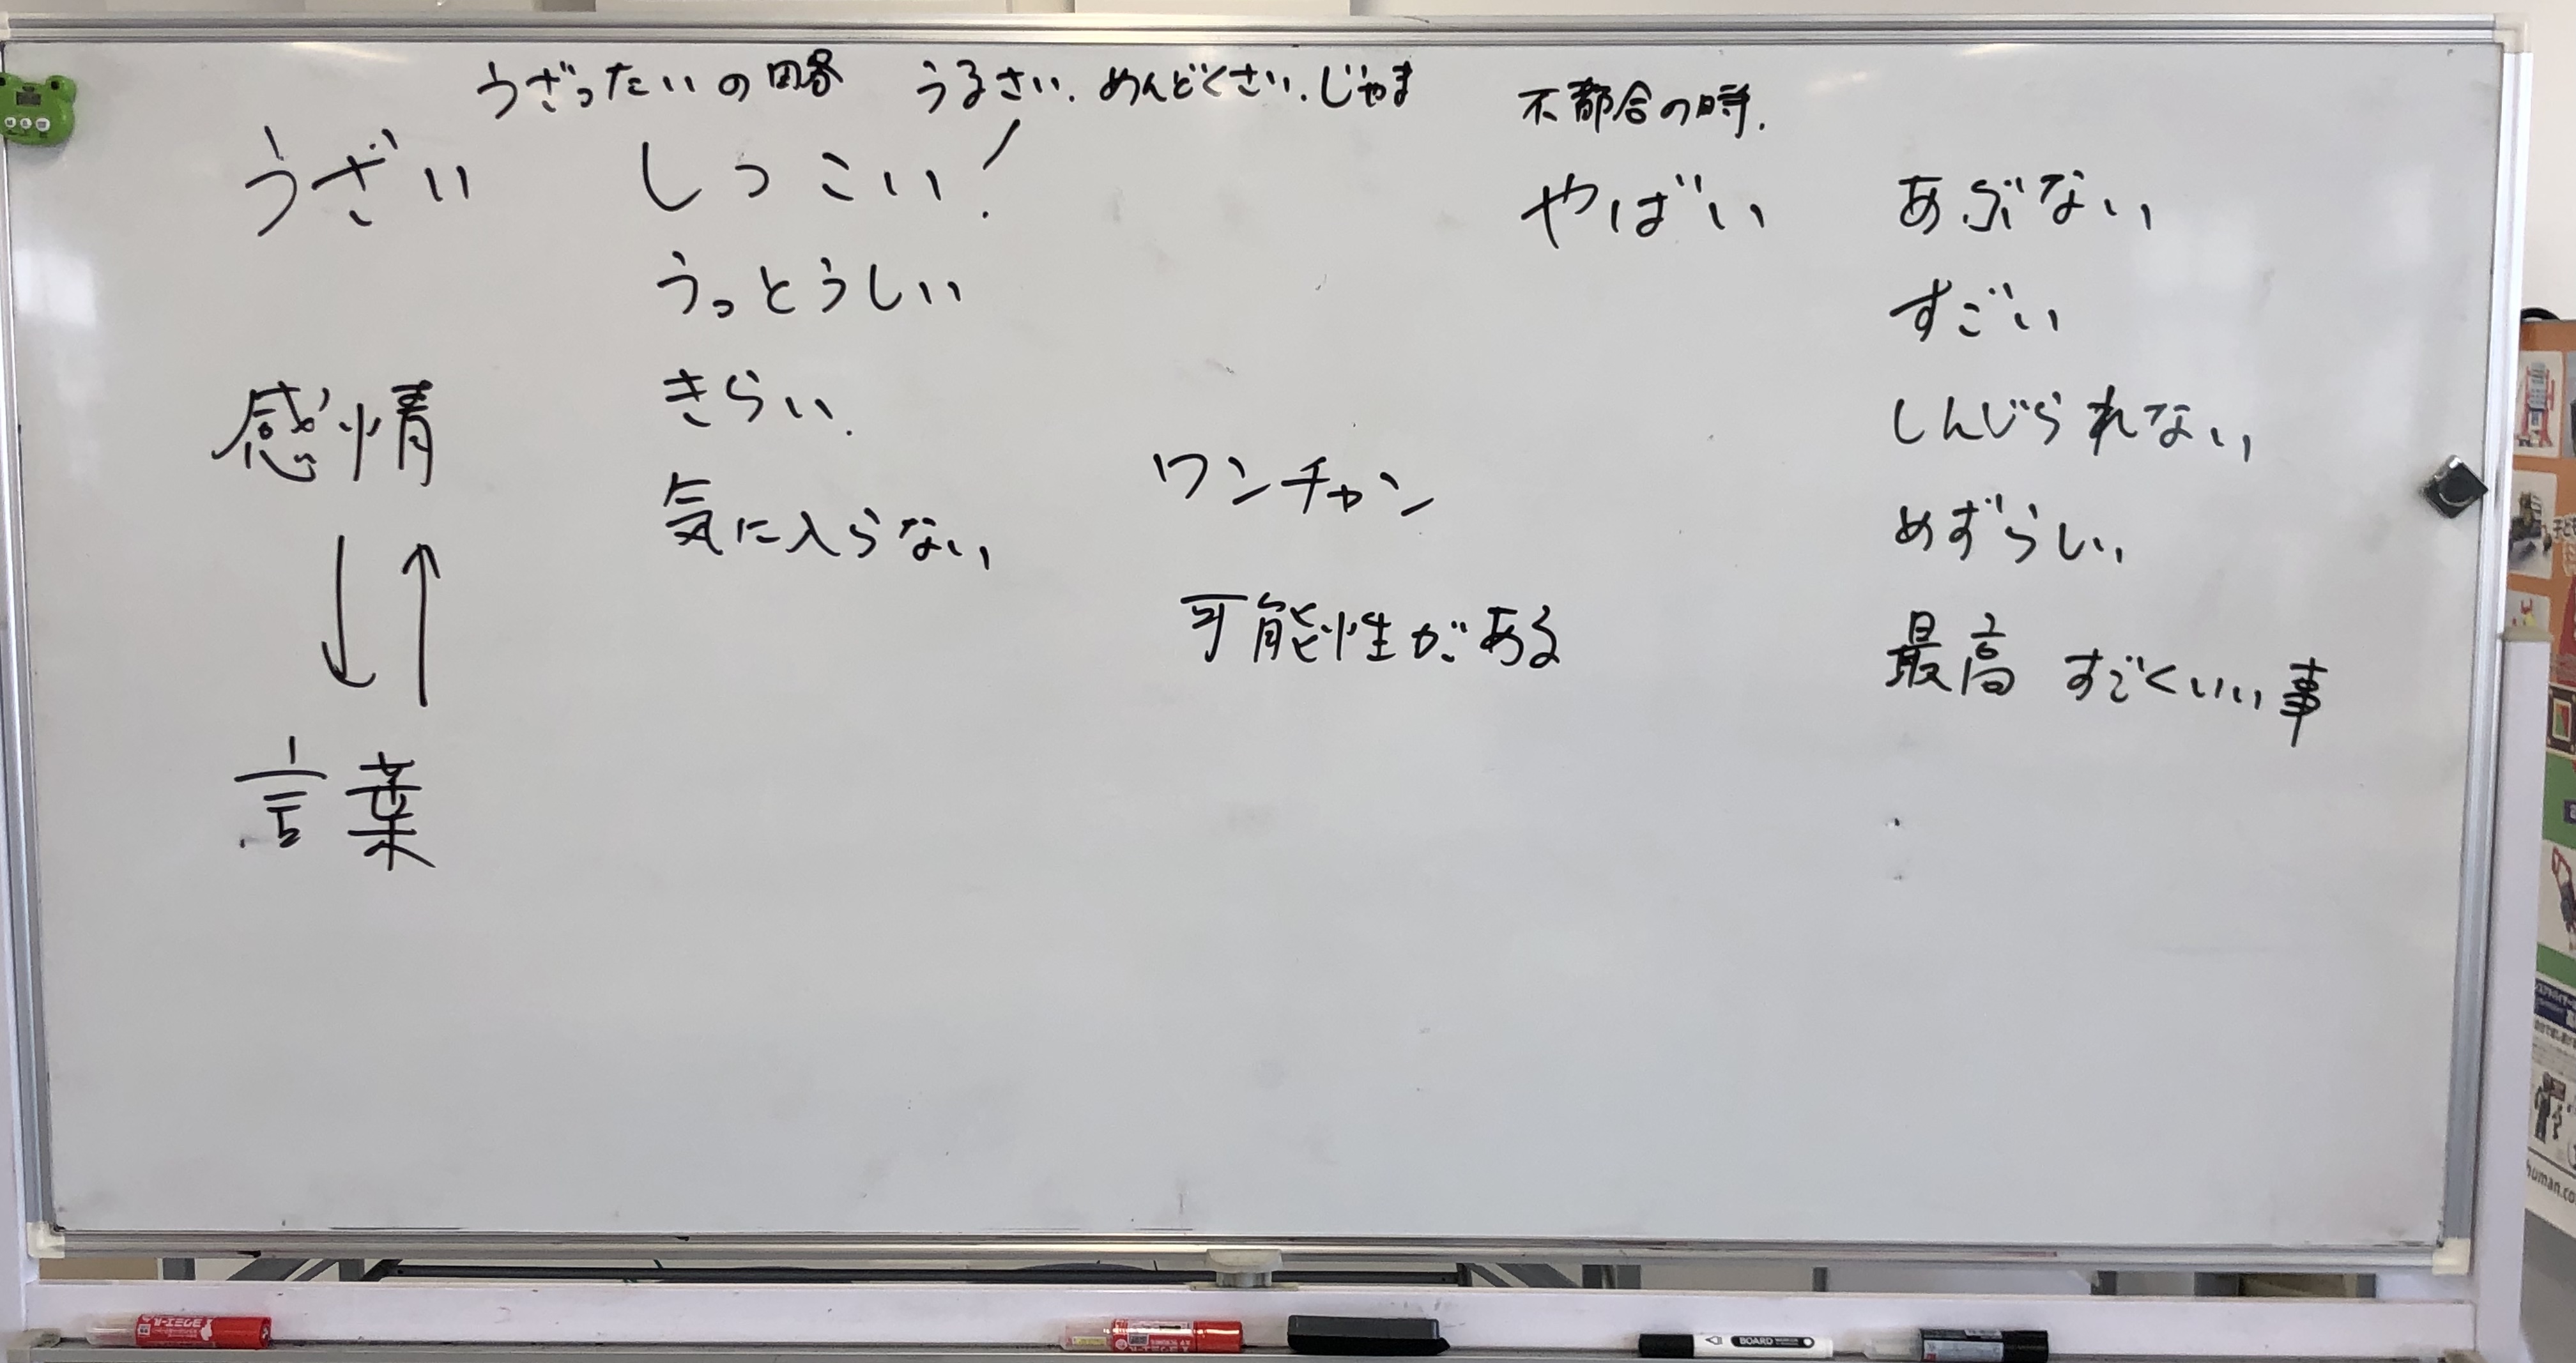 うざったいの略 うるさい.めんどくさい.じゃま
不都合の時.
うざい
しっこい!
うっとうしい
きらい.
気に入らない
感情
↓↑
言葉
ワンチャン
可能性がある
やばい
あぶない
すごい
しんじられない
めずらしい
最高 すごくいい事
BOARD
human.co